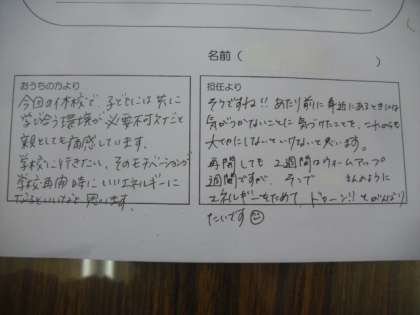 名前（　　　　　　　　）
おうちの方より
今回の休校で、子どもには共に
学び合う環境が必要不可欠だと
親としても痛感しています。
学校に行きたい、そのモチベーションが
学校再開時にいいエネルギーに
なるといいなと思います。
担任より
そうですね!! あたり前に身近にあるときには
気がつかないことに気づけたことを、これからも
大切にしないといけないと思います。
再開しても2週間はウォームアップ
週間ですが、そこで　　　さんのように
エネルギーをためて、ドゥーン!! とがんばり
たいです